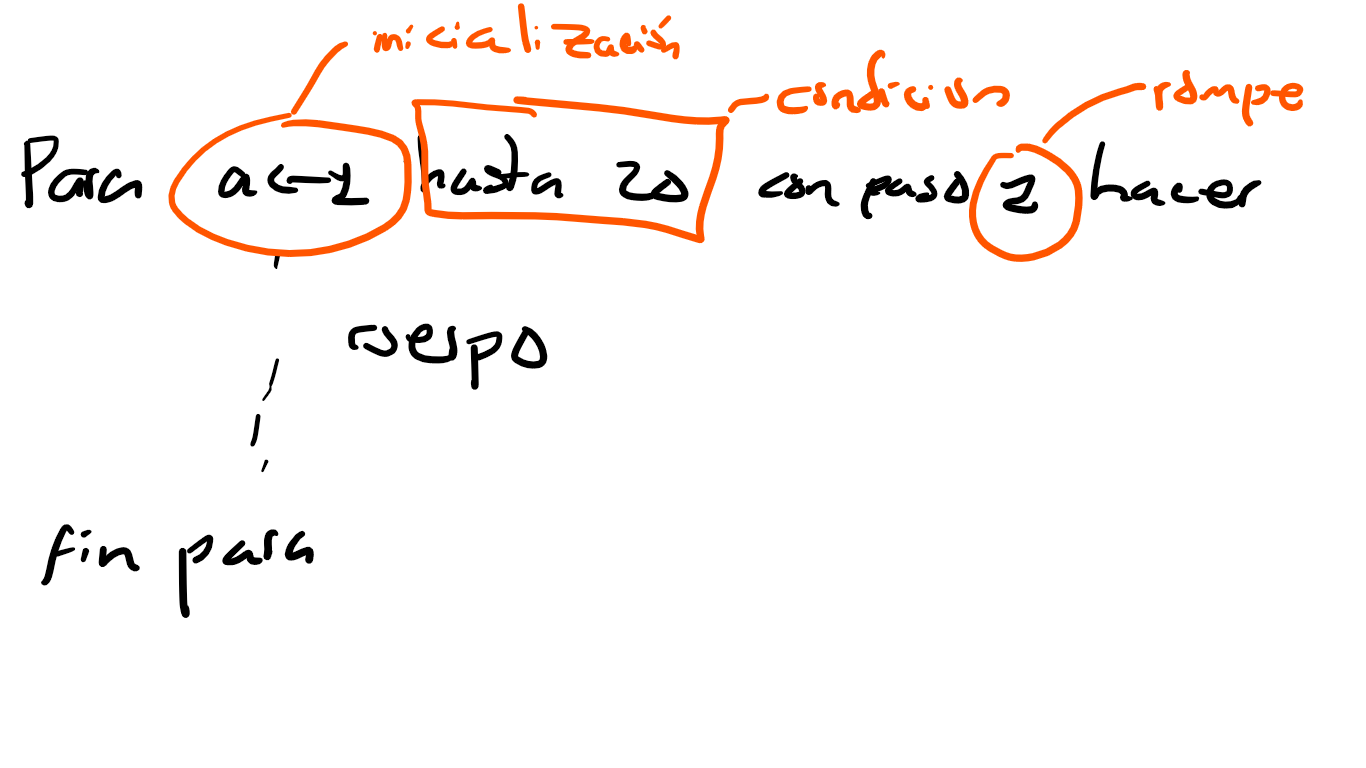 inicialización
condición
rompe
Para a<-1 hasta 20 con paso 1 hacer
cuerpo
fin para